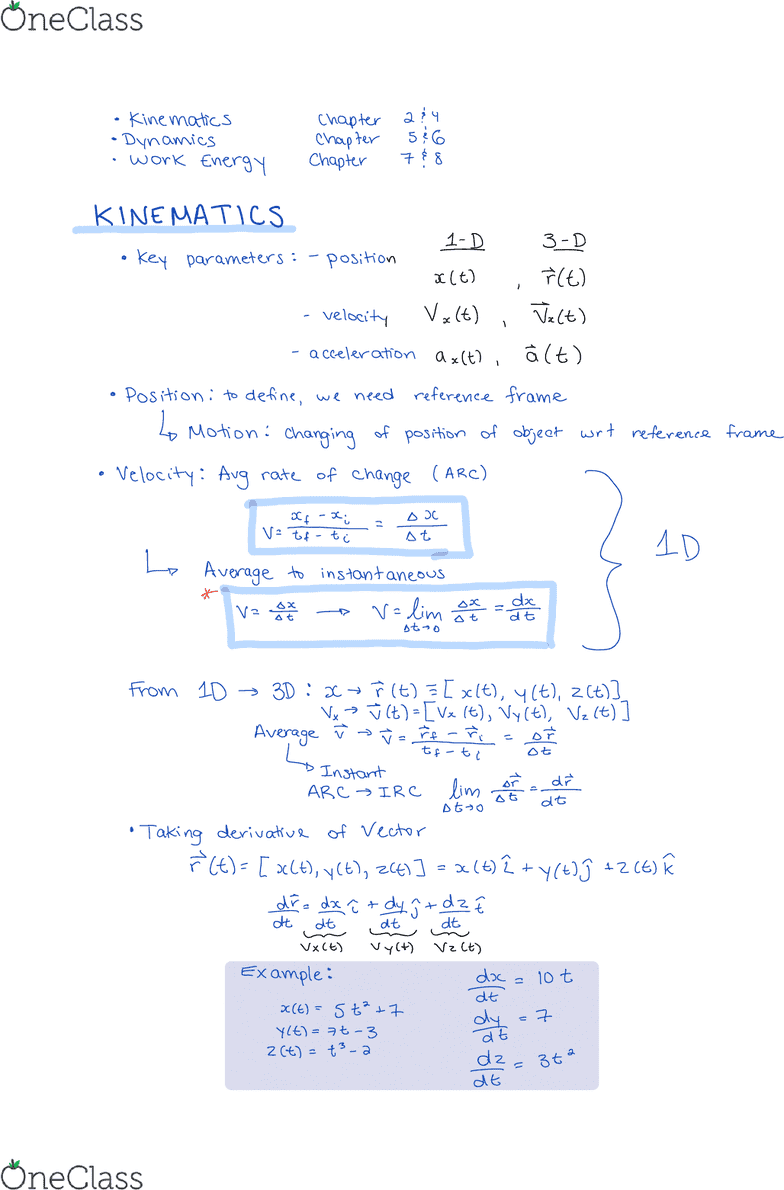 OneClass
• Kinematics Chapter 2 & 4
• Dynamics Chapter 5 & 6
• Work Energy Chapter 7 & 8
KINEMATICS
1-D 3-D
• Key parameters: - position x(t), r⃗(t)
- velocity Vₓ(t), V⃗ₓ(t)
- acceleration aₓ(t), a⃗(t)
• Position: to define, we need reference frame
↳ Motion: changing of position of object wrt reference frame
• Velocity: Avg rate of change (ARC)
V = (x_f - x_i)/(t_f - t_i) = Δx/Δt
1D
↳ Average to instantaneous
* V = Δx/Δt → V = lim Δt→0 Δx/Δt = dx/dt
From 1D → 3D : x → r⃗(t) ≡ [x(t), y(t), z(t)]
Vₓ → v⃗(t) = [Vx(t), Vy(t), Vz(t)]
Average v⃗ → v⃗ = (r⃗_f - r⃗_i)/(t_f - t_i) = Δr⃗/Δt
↳ Instant
ARC → IRC lim Δt→0 Δr⃗/Δt = dr⃗/dt
• Taking derivative of Vector
r⃗(t) = [x(t), y(t), z(t)] = x(t)î + y(t)ĵ + z(t)k̂
dr⃗/dt = dx/dt î + dy/dt ĵ + dz/dt t̂
Vx(t) Vy(t) Vz(t)
Example: dx/dt = 10t
x(t) = 5t² + 7
y(t) = 7t - 3 dy/dt = 7
z(t) = t³ - 2
dz/dt = 3t²
OneClass